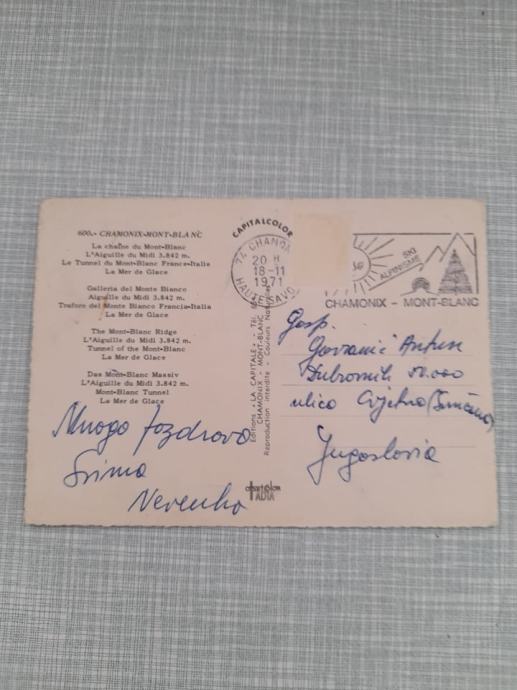 600.- CHAMONIX-MONT-BLANC
La chaîne du Mont-Blanc
L'Aiguille du Midi 3.842 m.
Le Tunnel du Mont-Blanc France-Italia
La Mer de Glace
Galleria del Monte Bianco
Aiguille du Midi 3.842 m.
Traforo del Monte Bianco Francia-Italia
La Mer de Glace
The Mont-Blanc Ridge
L'Aiguille du Midi 3.842 m.
Tunnel of the Mont-Blanc
La Mer de Glace
Das Mont-Blanc Massiv
L'Aiguille du Midi 3.842 m.
Mont-Blanc Tunnel
La Mer de Glace
Mnogo pozdrava
Svima
Nevenka
CAPITALCOLOR
Editions "LA CAPITALE"
CHAMONIX - MONT-BLANC
Reproduction interdite - Couleurs
74 CHAMONIX
20 H
18-11
1971
HAUTE SAVOIE
SKI
ALPINISME
CHAMONIX - MONT-BLANC
Gosp.
Dubrovnik 50.000
ulica Cvjetna
Jugoslavia